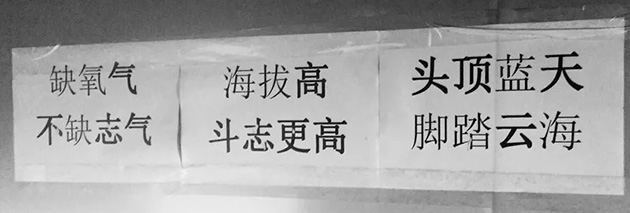 缺氧气
不缺志气
海拔高
斗志更高
头顶蓝天
脚踏云海